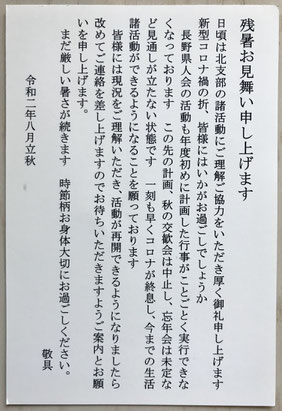 残暑お見舞い申し上げます
日頃は北支部の諸活動にご理解ご協力をいただき厚く御礼申し上げます
新型コロナ禍の折、皆様にはいかがお過ごしでしょうか
長野県人会の活動も年度初めに計画した行事がことごとく実行できな
くなっております　この先の計画、秋の交歓会は中止し、忘年会は未定な
ど見通しが立たない状態です　一刻も早くコロナが終息し、今までの生活
諸活動ができるようになることを願っております
皆様には現況をご理解いただき、活動が再開できるようになりましたら
改めてご連絡を差し上げますのでお待ちいただきますようご案内とお願
いを申し上げます。
まだ厳しい暑さが続きます　時節柄お身体大切にお過ごしください。
敬具
令和二年八月立秋